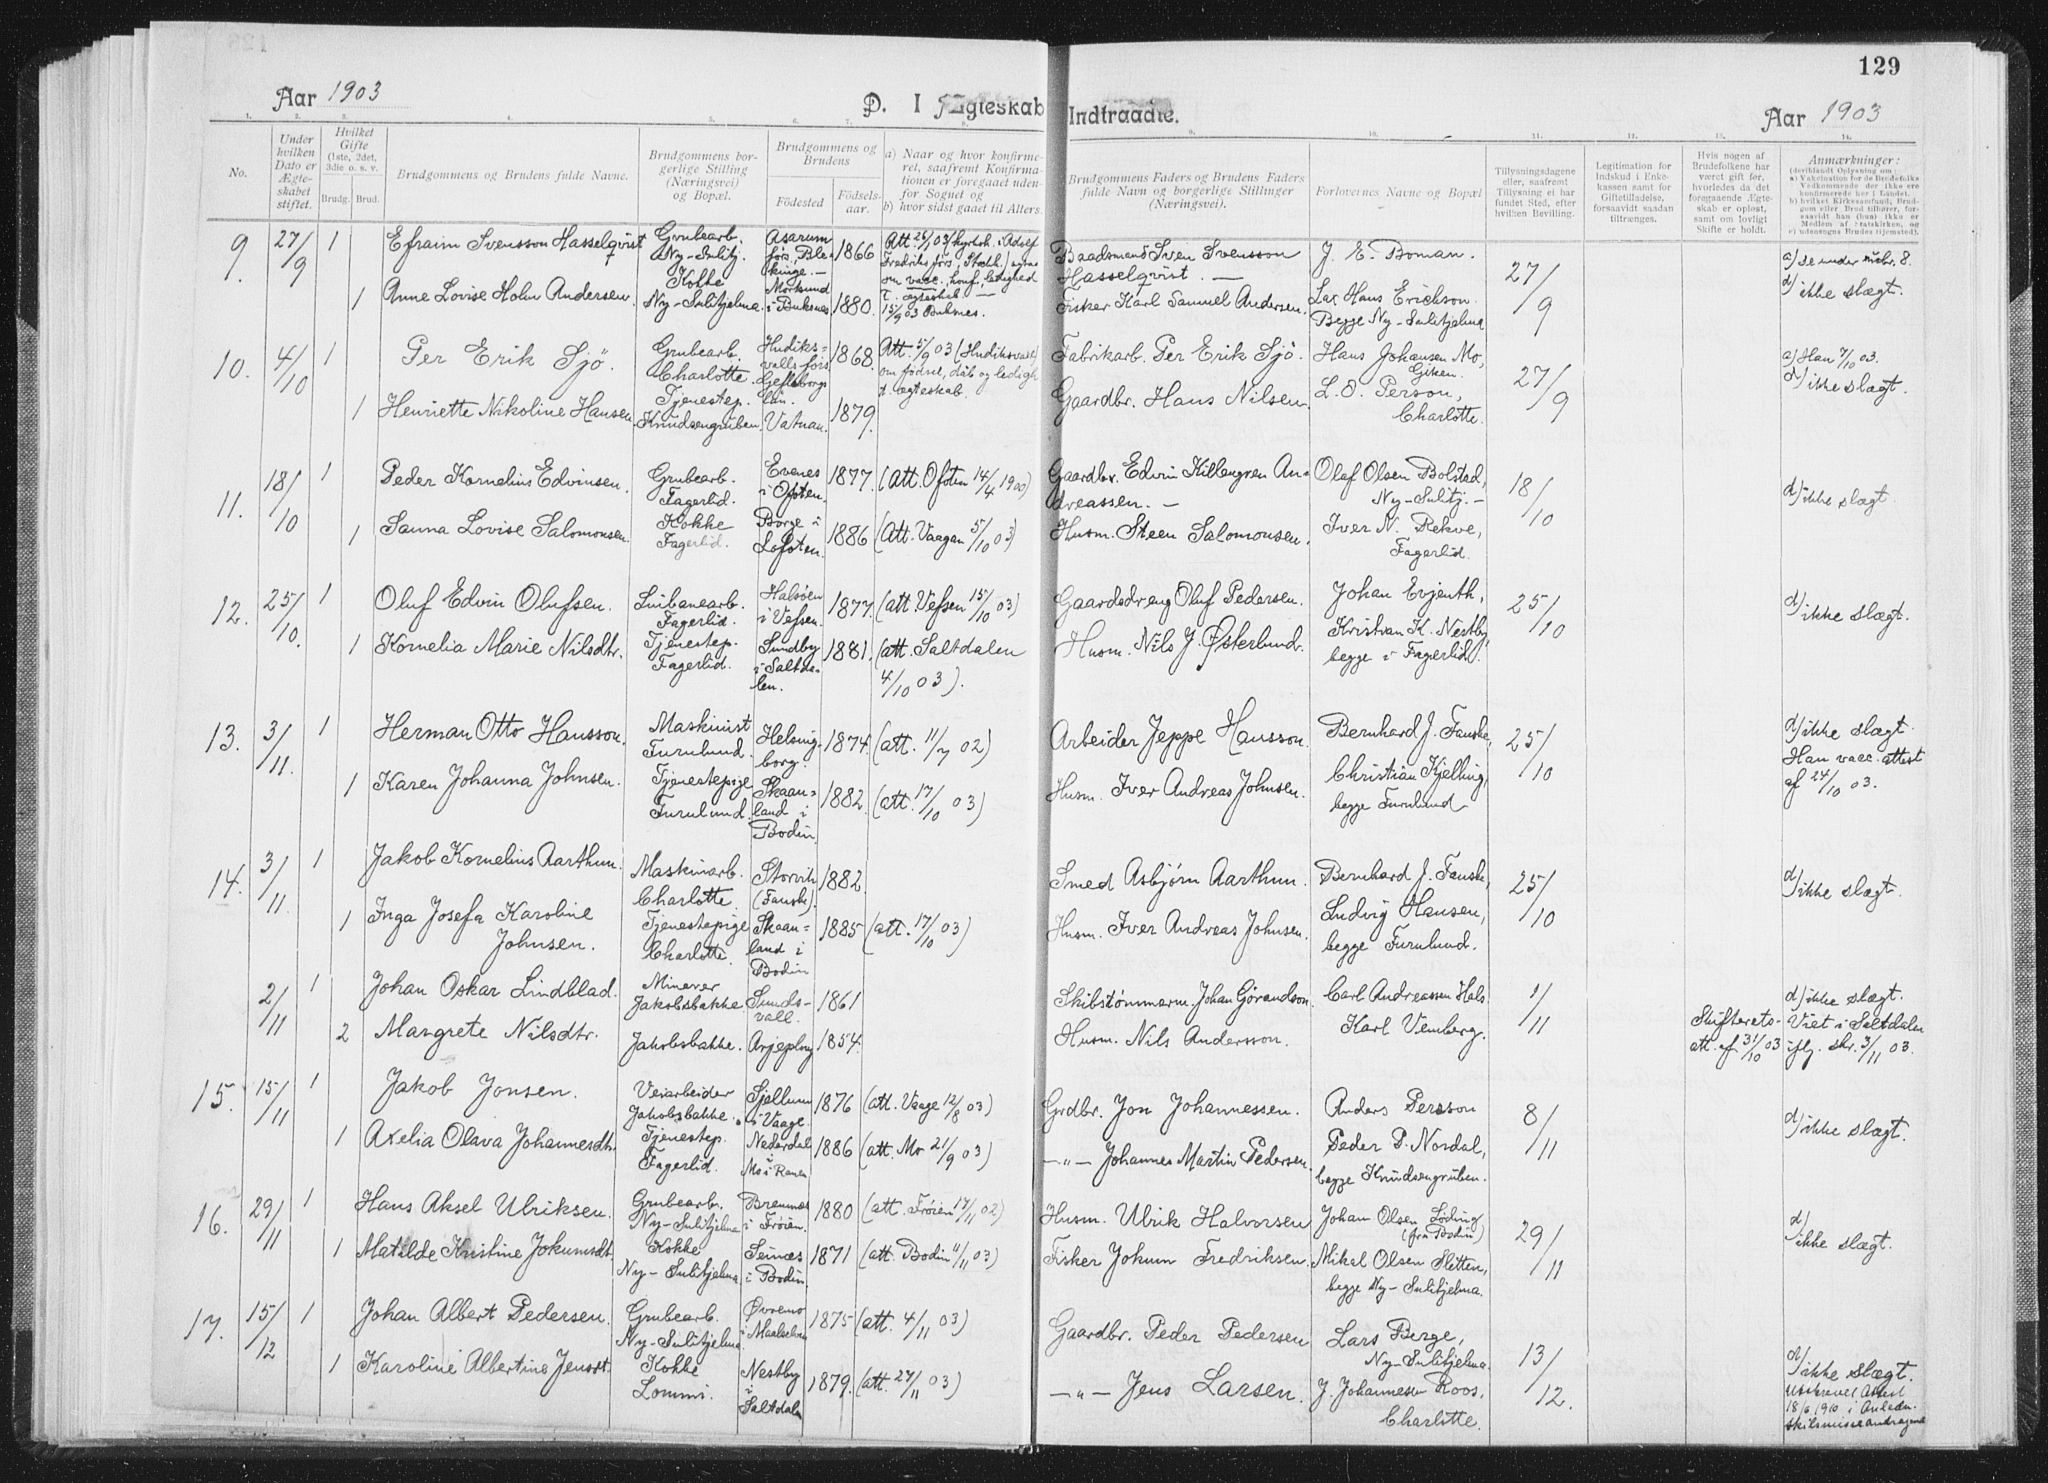 129
Aar 1903
D. I Ægteskab Indtraadte.
Aar 1903
1. 2. 3. 4. 5. 6. 7. 9. 10. 11. 12. 13. 14.
No.
Under hvilken Dato er Ægteskabet stiftet.
Hvilket Gifte (1ste, 2det, 3die o. s. v.
Brudg. Brud.
Brudgommens og Brudens fulde Navne.
Brudgommens borgerlige Stilling (Næringsvei) og Bopæl.
Brudgommens og Brudens
Fødested Fødselsaar.
a) Naar og hvor konfirmeret, saafremt Konfirmationen er foregaaet udenfor Sognet og
b) hvor sidst gaaet til Alters.
Brudgommens Faders og Brudens Faders fulde Navn og borgerlige Stillinger (Næringsvei).
Forlovernes Navne og Bopæl
Tillysningsdagene eller, saafremt Tillysning ei har fundet Sted, efter hvilken Bevilling.
Legitimation for Indskud i Enkekassen samt for Giftetilladelse, forsaavidt saadan tiltrænges.
Hvis nogen af Brudefolkene har været gift før, hvorledes da det foregaaende Ægteskab er opløst, samt om lovligt Skifte er holdt.
Anmærkninger:
(deriblandt Oplysning om:
a) Vakcination for de Brudefolks Vedkommende der ikke ere konfirmerede her i Landet.
b) hvilket Kirkesamfund, Brudgom eller Brud tilhører, forsaavidt han (hun) ikke er Medlem af Statskirken, og
c) udensogns Brudes Hjemsted).
9. 27/9 1 Efraim Svensson Hasselqvist Grubearb. Ny-Sulitj. Asarum förs, Blekinge. — 1866 Att. 26/ 03 (kyrkoh. i Adolf Fredriks förs, Stockh.) om vacc., konf., ledighed t. ægteskab. — Baadsmand Sven Svensson Hasselqvist. — J. E. Boman. 27/9 a) Se under nr. 8. d) ikke slægt.
1 Anne Lovise Holm Andersen. Kokke Ny-Sulitjelma. Mørksund i Buksnes 1880. 15/9 03 Buksnes. Fisker Karl Samuel Andersen. Lars Hans Erickson. Begge Ny-Sulitjelma
10. 4/10 1 Per Erik Sjö. Grubearb. Charlotte. Hudiksvalls förs Gefleborgs län. 1868. Att. 5/9 03 (Hudiksvall) om fødsel, dåb og ledigh t. ægteskab. Fabrikarb. Per Erik Sjö. Hans Johansen Mo, Giken. 27/9 a) Han 7/10 03. d) ikke slægt.
1 Henriette Nikoline Hansen. Tjenestep. Knudsengruben. Vatnan. 1879. Gaardbr. Hans Nilsen. L. E. Person, Charlotte.
11. 18/10 1 Peder Kornelius Edvinsen. Grubearb. Fagerlid. Evenes i Ofoten. 1877. (Att. Ofoten 14/4 1900) Gaardbr. Edvin Killengren Andreassen. — Olaf Olsen Bolstad, Ny-Sulitj. — 18/10 d) ikke slægt
1 Sanna Lovise Salomonsen. Kokke Fagerlid. Borge i Lofoten. 1886 (Att. Vaagan 5/10 03) Husm. Steen Salomonsen. Iver N. Rekve, Fagerlid.
12. 25/10. 1 Oluf Edvin Olufsen. Linbanearb. Fagerlid. Halsøen i Vefsen. 1877. (att. Vefsen 15/10 03) Gaardsdreng Oluf Pedersen. Johan Evjenth, 25/10 d) ikke slægt.
1 Kornelia Marie Nilsdtr. Tjenestep. Fagerlid. Sundby i Saltdalen. 1881. (att. Saltdalen 4/10 03). Husm. Nils J. Østerlund. Kristian K. Nestby, begge i Fagerlid.
13. 3/11. 1 Herman Otto Hansson. Maskinist Furulund. Helsingborg. 1874. (att. 11/7 02) Arbeider Jeppe Hansson. Bernhard J. Fauske, 25/10 d) ikke slægt. Han vacc. attest af 24/10 03.
1 Karen Johanna Johnsen. Tjenestepige Furulund. Skaanland i Bodin. 1882. (att. 17/10 03) Husm. Iver Andreas Johnsen. Christian Kjelling, begge Furulund
14. 3/11. 1 Jakob Kornelius Aarthun. Maskinarb. Charlotte. Storvik (Fauske). 1882. Smed Asbjørn Aarthun. Bernhard J. Fauske, 25/10 d) ikke slægt.
1 Inga Josefa Karoline Johnsen. Tjenestepige Charlotte. Skaanland i Bodin 1885 (att. 17/10 03) Husm. Iver Andreas Johnsen. Ludvig Hansen, begge Furulund.
2/11 1 Johan Oskar Lindblad. Minerer Jakobsbakke. Sundsvall. 1861 Skibstømmerm. Johan Görandson. Carl Andreassen Hals. 1/11 d) ikke slægt.
2 Margrete Nilsdtr. Jakobsbakke. Arjeplog 1854. Husm. Nils Andersson. Karl Vemberg. Skifterets-att. af 31/10 03 Viet i Saltdalen iflg. skr. 3/11 03.
15. 15/11 1 Jakob Jonsen. Veiarbeider Jakobsbakke. Sjellum i Vaage. 1876 (att. Vaage 12/8 03) Grdbr. Jon Johannessen. Anders Persson 8/11 d) ikke slægt.
1 Axelia Olava Johannesdtr. Tjenestep. Fagerlid. Nederdal i Mo i Ranen 1886 (att. Mo 21/9 03) —"— Johannes Martin Pedersen. Peder P. Nordal, begge Knudsengruben.
16. 29/11 1 Hans Aksel Ulriksen. Grubearb. Ny-Sulitjelma Bremnes i Frøien. 1880 (att. Frøien 17/11 02) Husm. Ulrik Halvorsen Johan Olsen Løding (fra Bodin) 29/11 d) ikke slægt.
1 Matilde Kristine Jokumsdt. Kokke Ny-Sulitjelma Seines i Bodin. 1871 (att. Bodin 11/11 03) Fisker Jokum Fredriksen. Mikal Olsen Sletten, begge Ny-Sulitjelma.
17. 15/12 1 Johan Albert Pedersen. Grubearb. Ny-Sulitjelma. Øvremo i Maalselven 1875 (att. 4/11 03) Gaardbr. Peder Pedersen Lars Berge, Ny-Sulitjelma. 13/12. d) ikke slægt.
1 Karoline Albertine Jensdt. Kokke Lommi. Nestby i Saltdalen 1879. (att. 27/11 03) —"— Jens Larsen. J. Johannesen Roos, Charlotte. Utskrevet Attest 18/6 1910 i Anledn. skilsmisseandragende